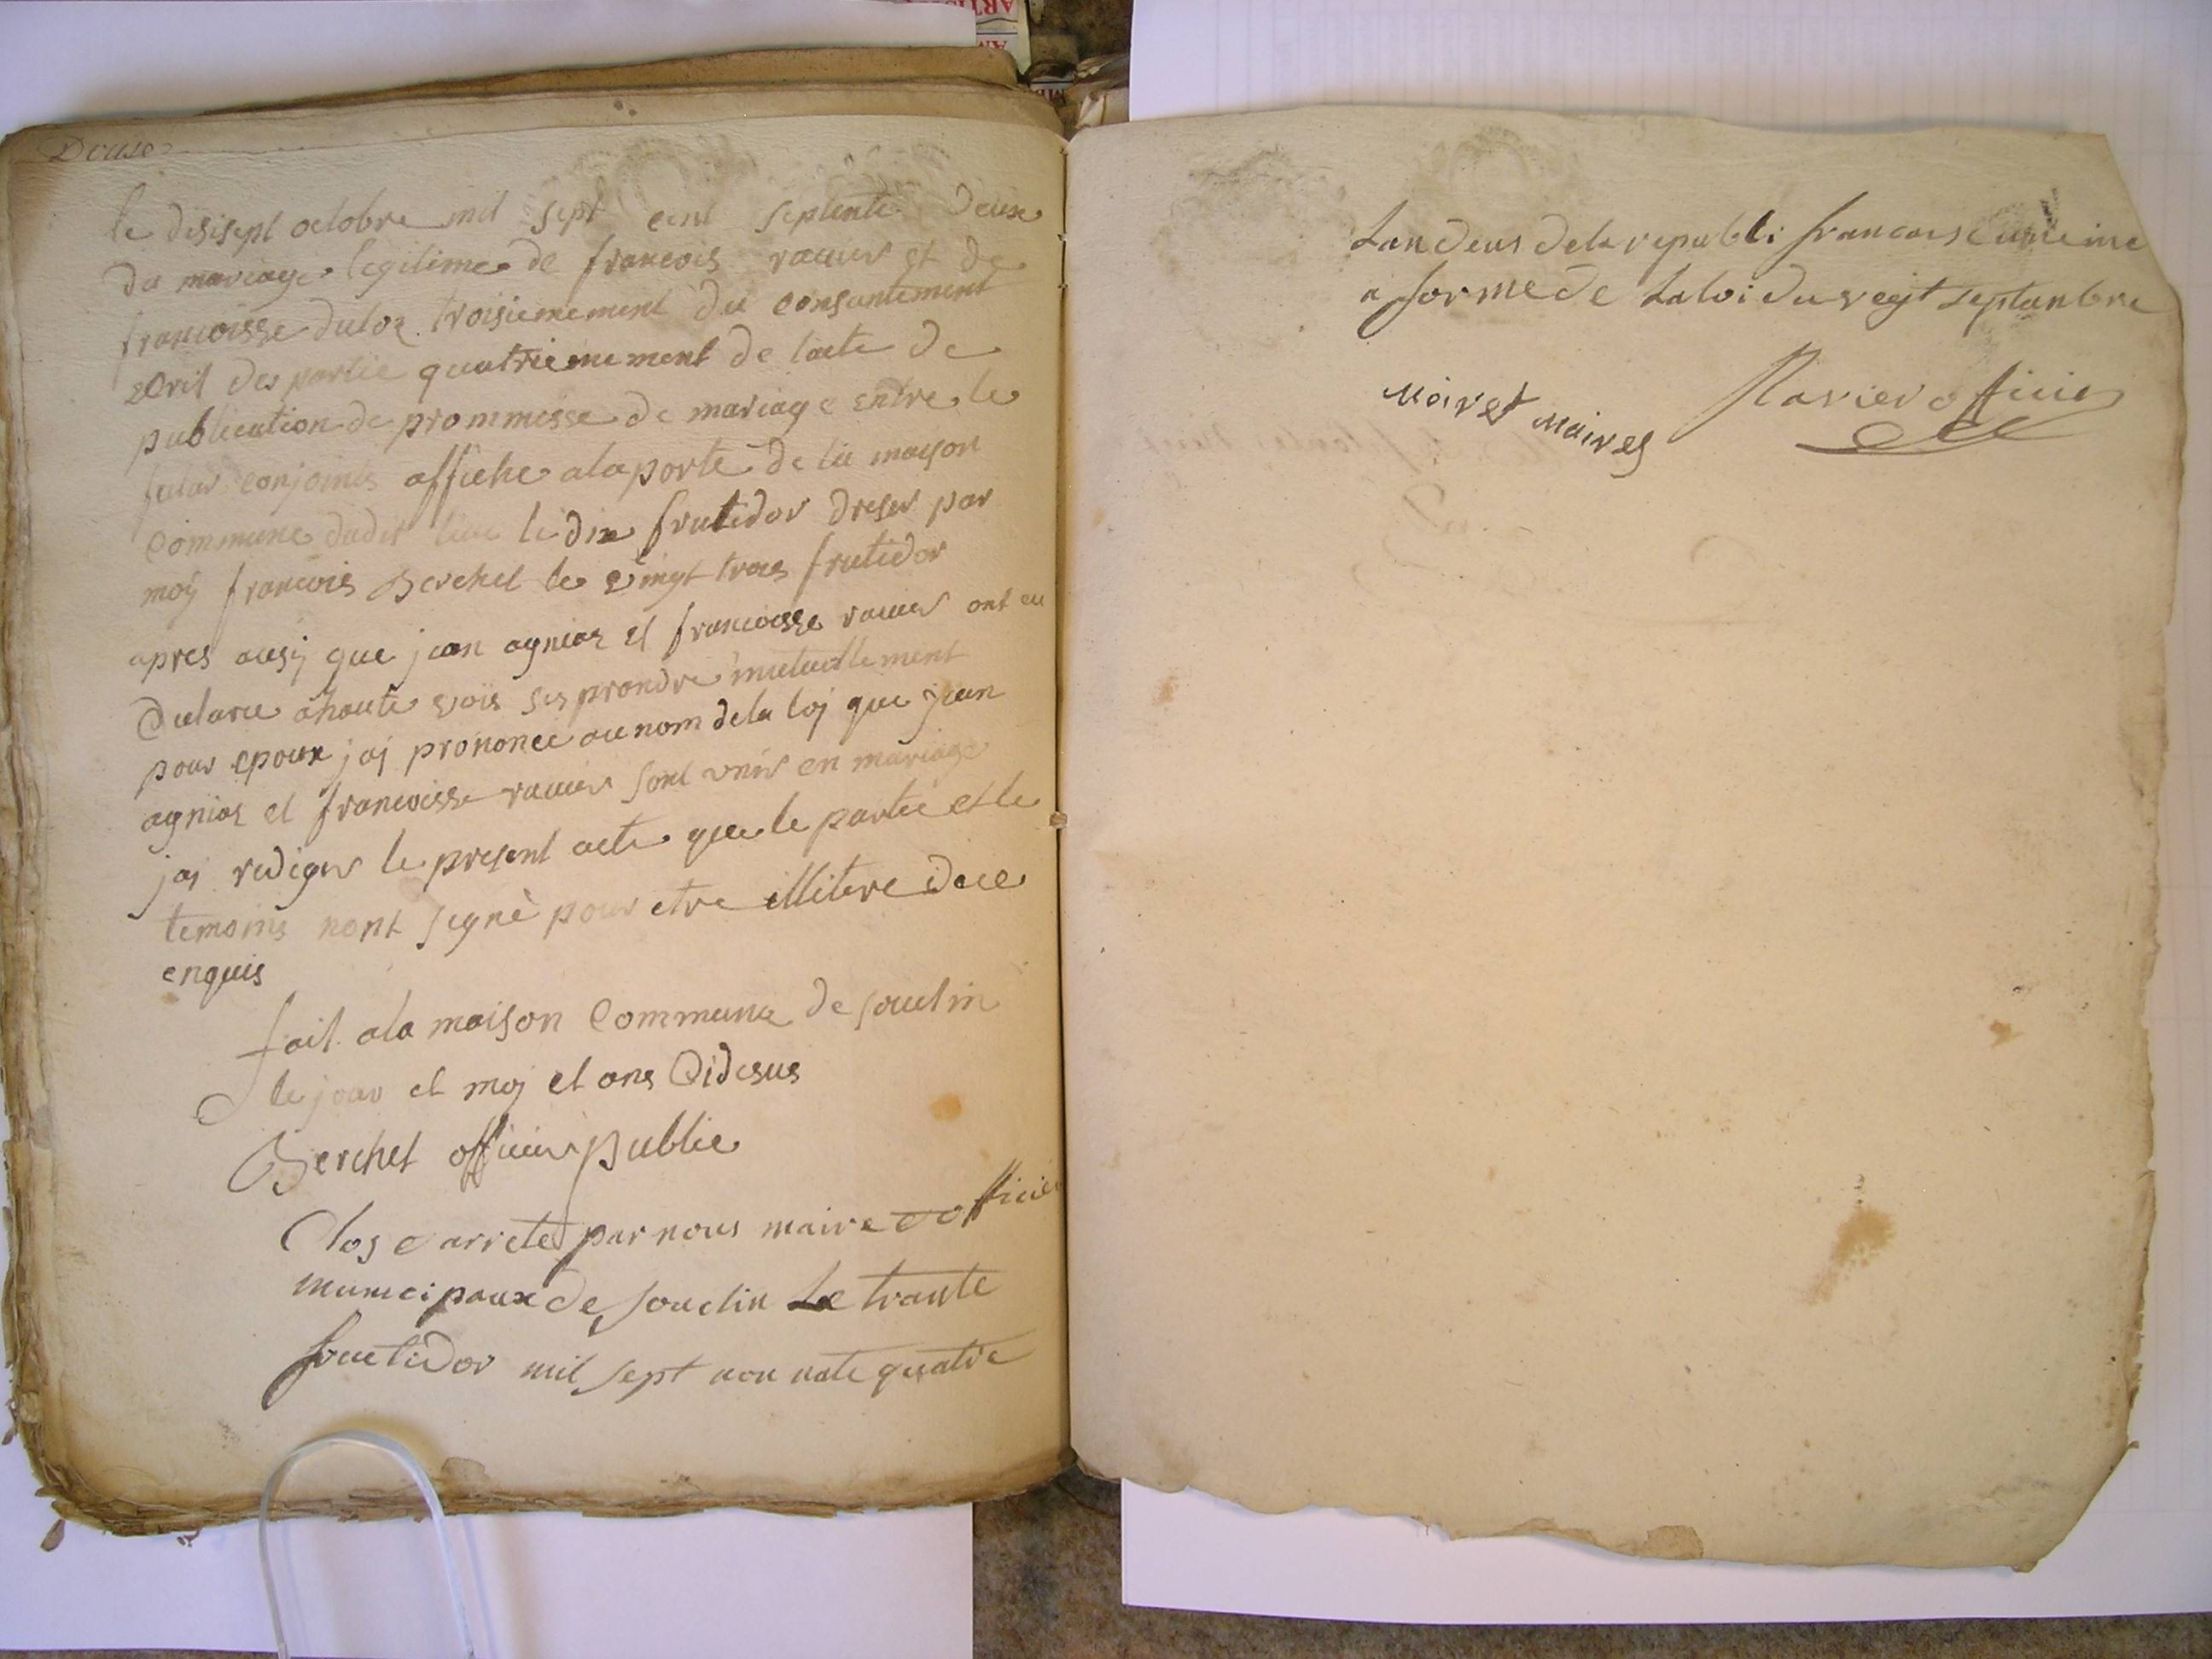 Douse
le disisept octobre mil sept cent septente deux
du mariage legitime de francois ravier et de
francoisse duloz troisiemement du consantement
ecrit des partie quatriemement de lacte de
publication de prommesse de mariage entre le
futur conjoints affiche a la porte de la maison
commune dudit lieu le dix frutidor dreser par
moÿ francois Berchet le vingt trois frutidor
apres ausij que jean agniaz et francoisse ravier ont eu
declare a haute vois ses prondre mutuellement
pour epoux jaj prononce au nom de la loj que jean
agniaz et francoisse ravier sont unir en mariage
jaj rediger le present acte que le partie et le
temoins nont signè pour etre illitere de ce
enquis
fait a la maison Commune de souclin
le jour et moj et ans Cidesus
Berchet officier publie
Clos e arrete par nous maire e officier
municipaux de souclin Le trante
fructidor mil sept nonnate quatre
Lan deus de la republi francais
a forme de La loi du vegt septanbre
Moiret Maires
Ravier officier